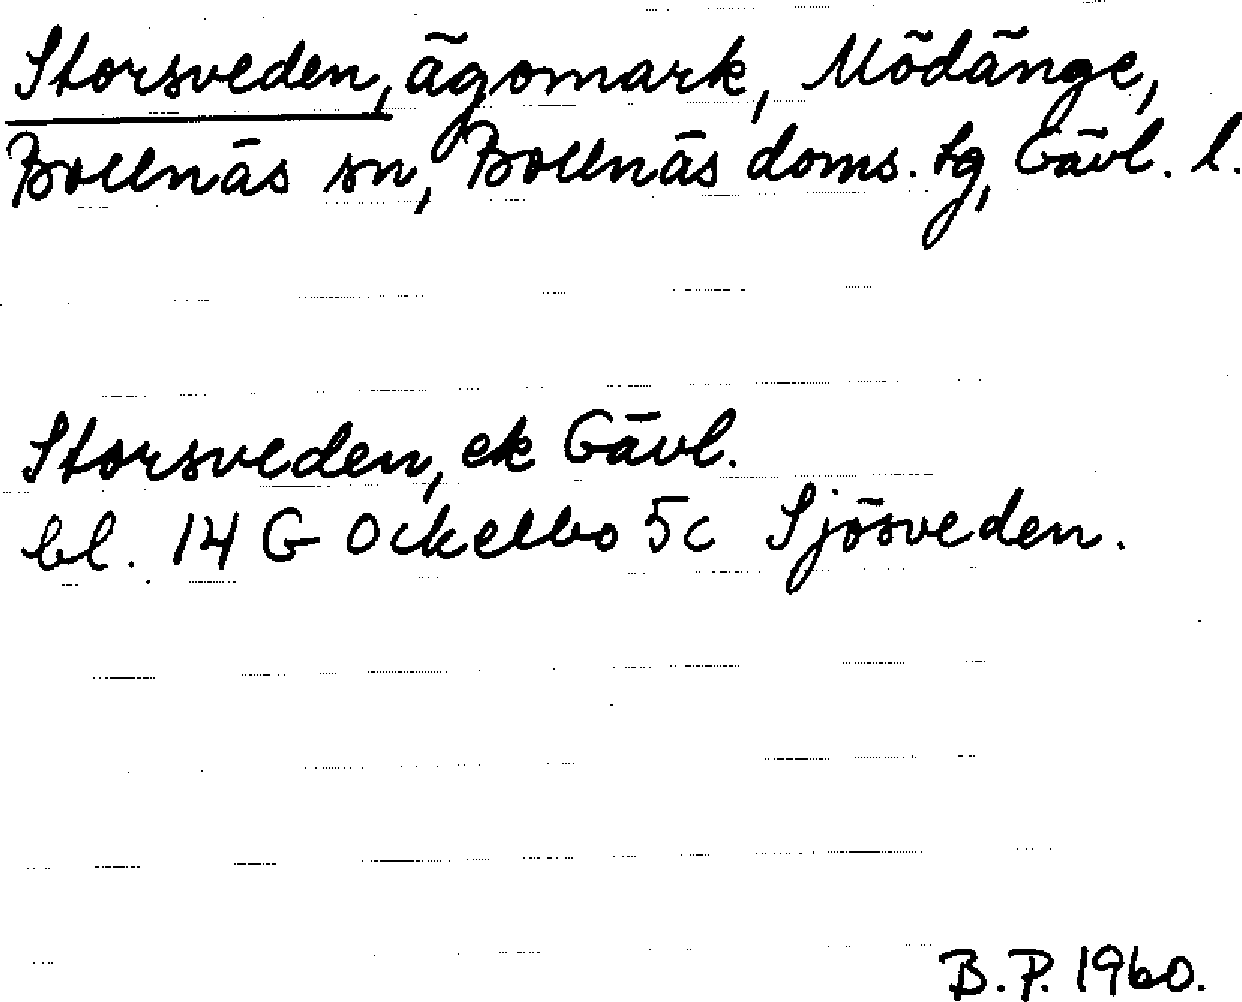 Storsveden, ägomark, Mödänge,
Bollnäs sn, Bollnäs doms. tg, Gävl. l.
Storsveden, ek Gävl.
bl. 14 G Ockelbo 5c Sjösveden.
B.P. 1960.